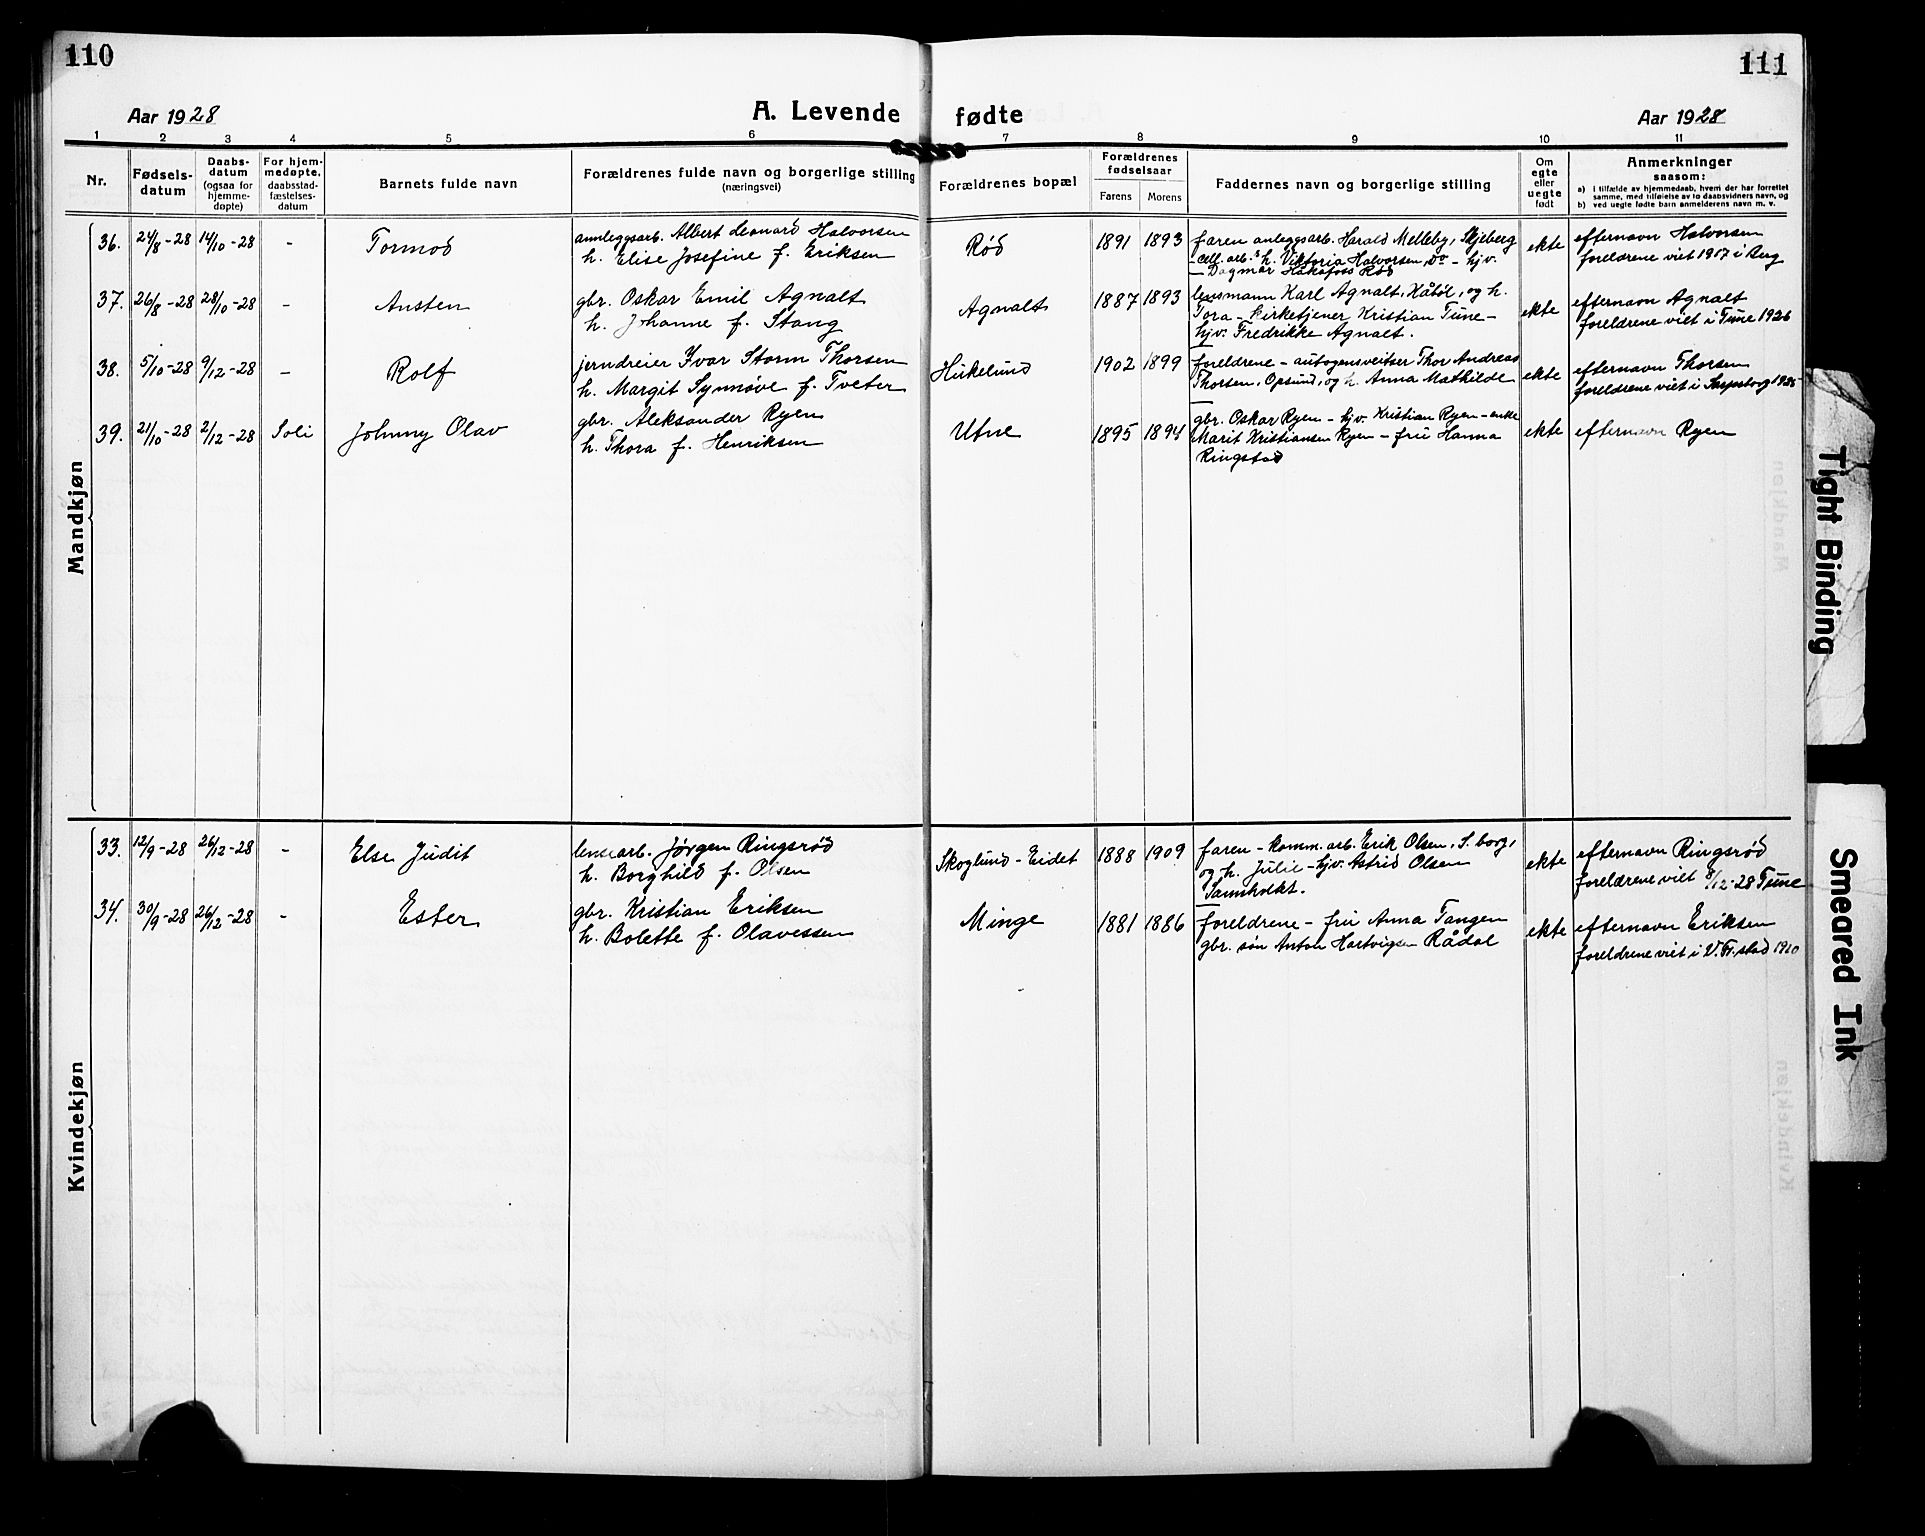 110
111
Aar 1928
A. Levende fødte
Aar 1928
1 2 3 4 5 6 7 8 8 9 10 11
Nr.
Fødsels-
datum
Daabs-
datum
(ogsaa for
hjemme-
døpte)
For hjem-
medøpte,
daabsstad-
fæstelses-
datum
Barnets fulde navn
Forældrenes fulde navn og borgerlige stilling
(næringsvei)
Forældrenes bopæl
Forældrenes
fødselsaar
Farens Morens
Faddernes navn og borgerlige stilling
Om
egte
eller
uegte
født
Anmerkninger
saasom:
a) i tilfælde av hjemmedaab, hvem der har forrettet
samme, med tilføielse av to daabsvidners navn, og
b) ved uegte fødte barn anmelderens navn m. v.
Mandkjøn
36. 24/8-28 14/10-28 - Tormod
anleggsarb. Albert Leonard Halvorsen
h. Elise Josefine f. Eriksen
Rød 1891 1893
faren anleggsarb. Harald Melleby, Skjeberg
cell. arb. h. Viktoria Halvorsen, Do - hjv.
Dagmar Hakafoss Rød
ekte
efternavn Halvorsen
foreldrene viet 1917 i Berg
37. 26/8-28 28/10-28 - Austen
gbr. Oskar Emil Agnalt
h. Johanne f. Stang
Agnalt 1887 1893
lensmann Karl Agnalt, Kåbøl, og h.
Tora - kirketjener Kristian Tune -
hjv. Fredrikke Agnalt.
ekte
efternavn Agnalt
foreldrene viet i Tune 1926
38. 5/10-28 9/12-28 - Rolf
jerndreier Ivar Storm Thorsen
h. Margit Synnøve f. Tveter
Hukelund 1902 1899
foreldrene - autogensveitser Thor Andreas
Thorsen, Opsund, og h. Anna Mathilde
ekte
efternavn Thorsen
foreldrene viet i Sarpsborg
39. 21/10-28 2/12-28 Soli Johnny Olav
gbr. Aleksander Ryen
h. Thora f. Henriksen
Utne 1895 1894
gbr. Oskar Ryen - hjv. Kristian Ryen - enke
Marit Kristiansen Ryen - fru Hanna
Ringstad
ekte
efternavn Ryen
Kvindekjøn
33. 12/9-28 26/12-28 - Else Judit
lensearb. Jørgen Ringsrød
h. Borghild f. Olsen
Skoglund - Eidet 1888 1909
faren - komm. arb. Erik Olsen, S.borg,
og h. Julie - hjv. Astrid Olsen
ekte
efternavn Ringsrød
foreldrene viet 8/12-28 Tune
34. 30/9-28 26/12-28 - Ester
gbr. Kristian Eriksen
h. Bolette f. Olavessen
Minge 1881 1886
foreldrene - fru Anna Tangen
gbr. søn Anton Hartvigsen Rådal
ekte
efternavn Eriksen
foreldrene viet i V. Fr.stad 1910
Tight Binding
Smeared Ink